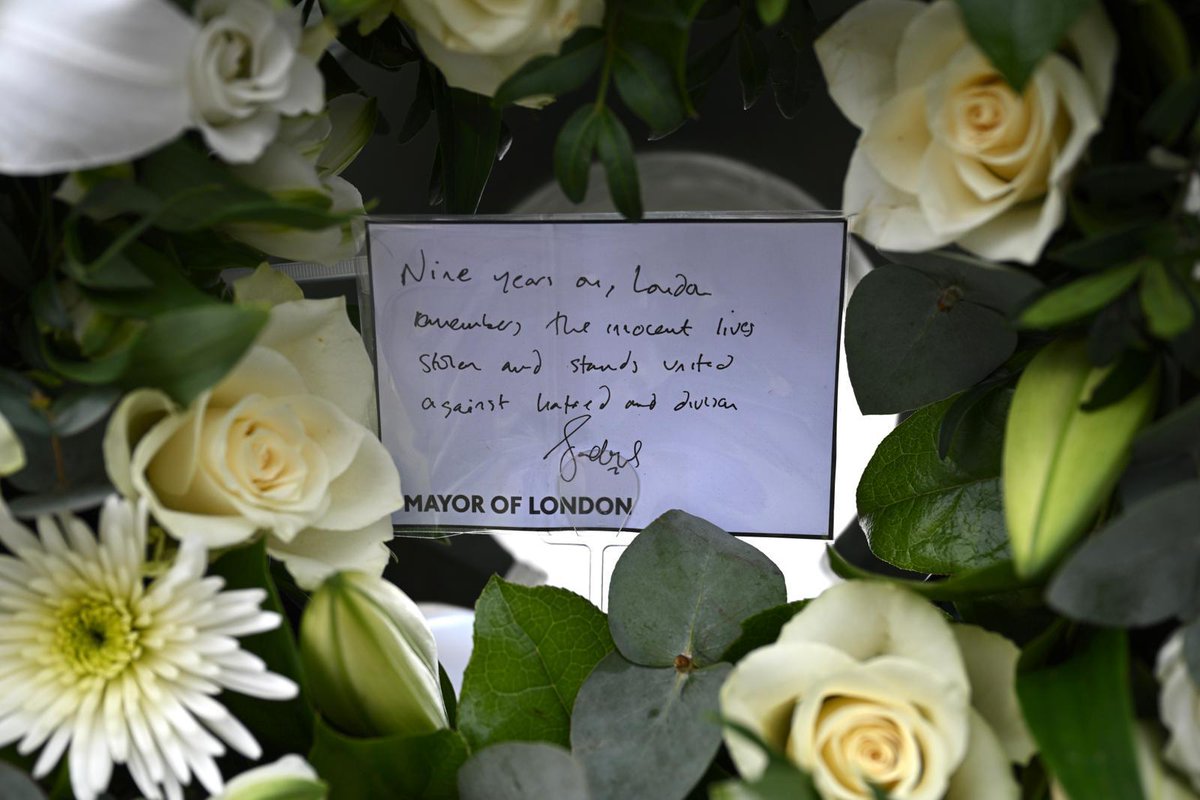 Nine years on, London
remembers the innocent lives
stolen and stands united
against hatred and division
MAYOR OF LONDON